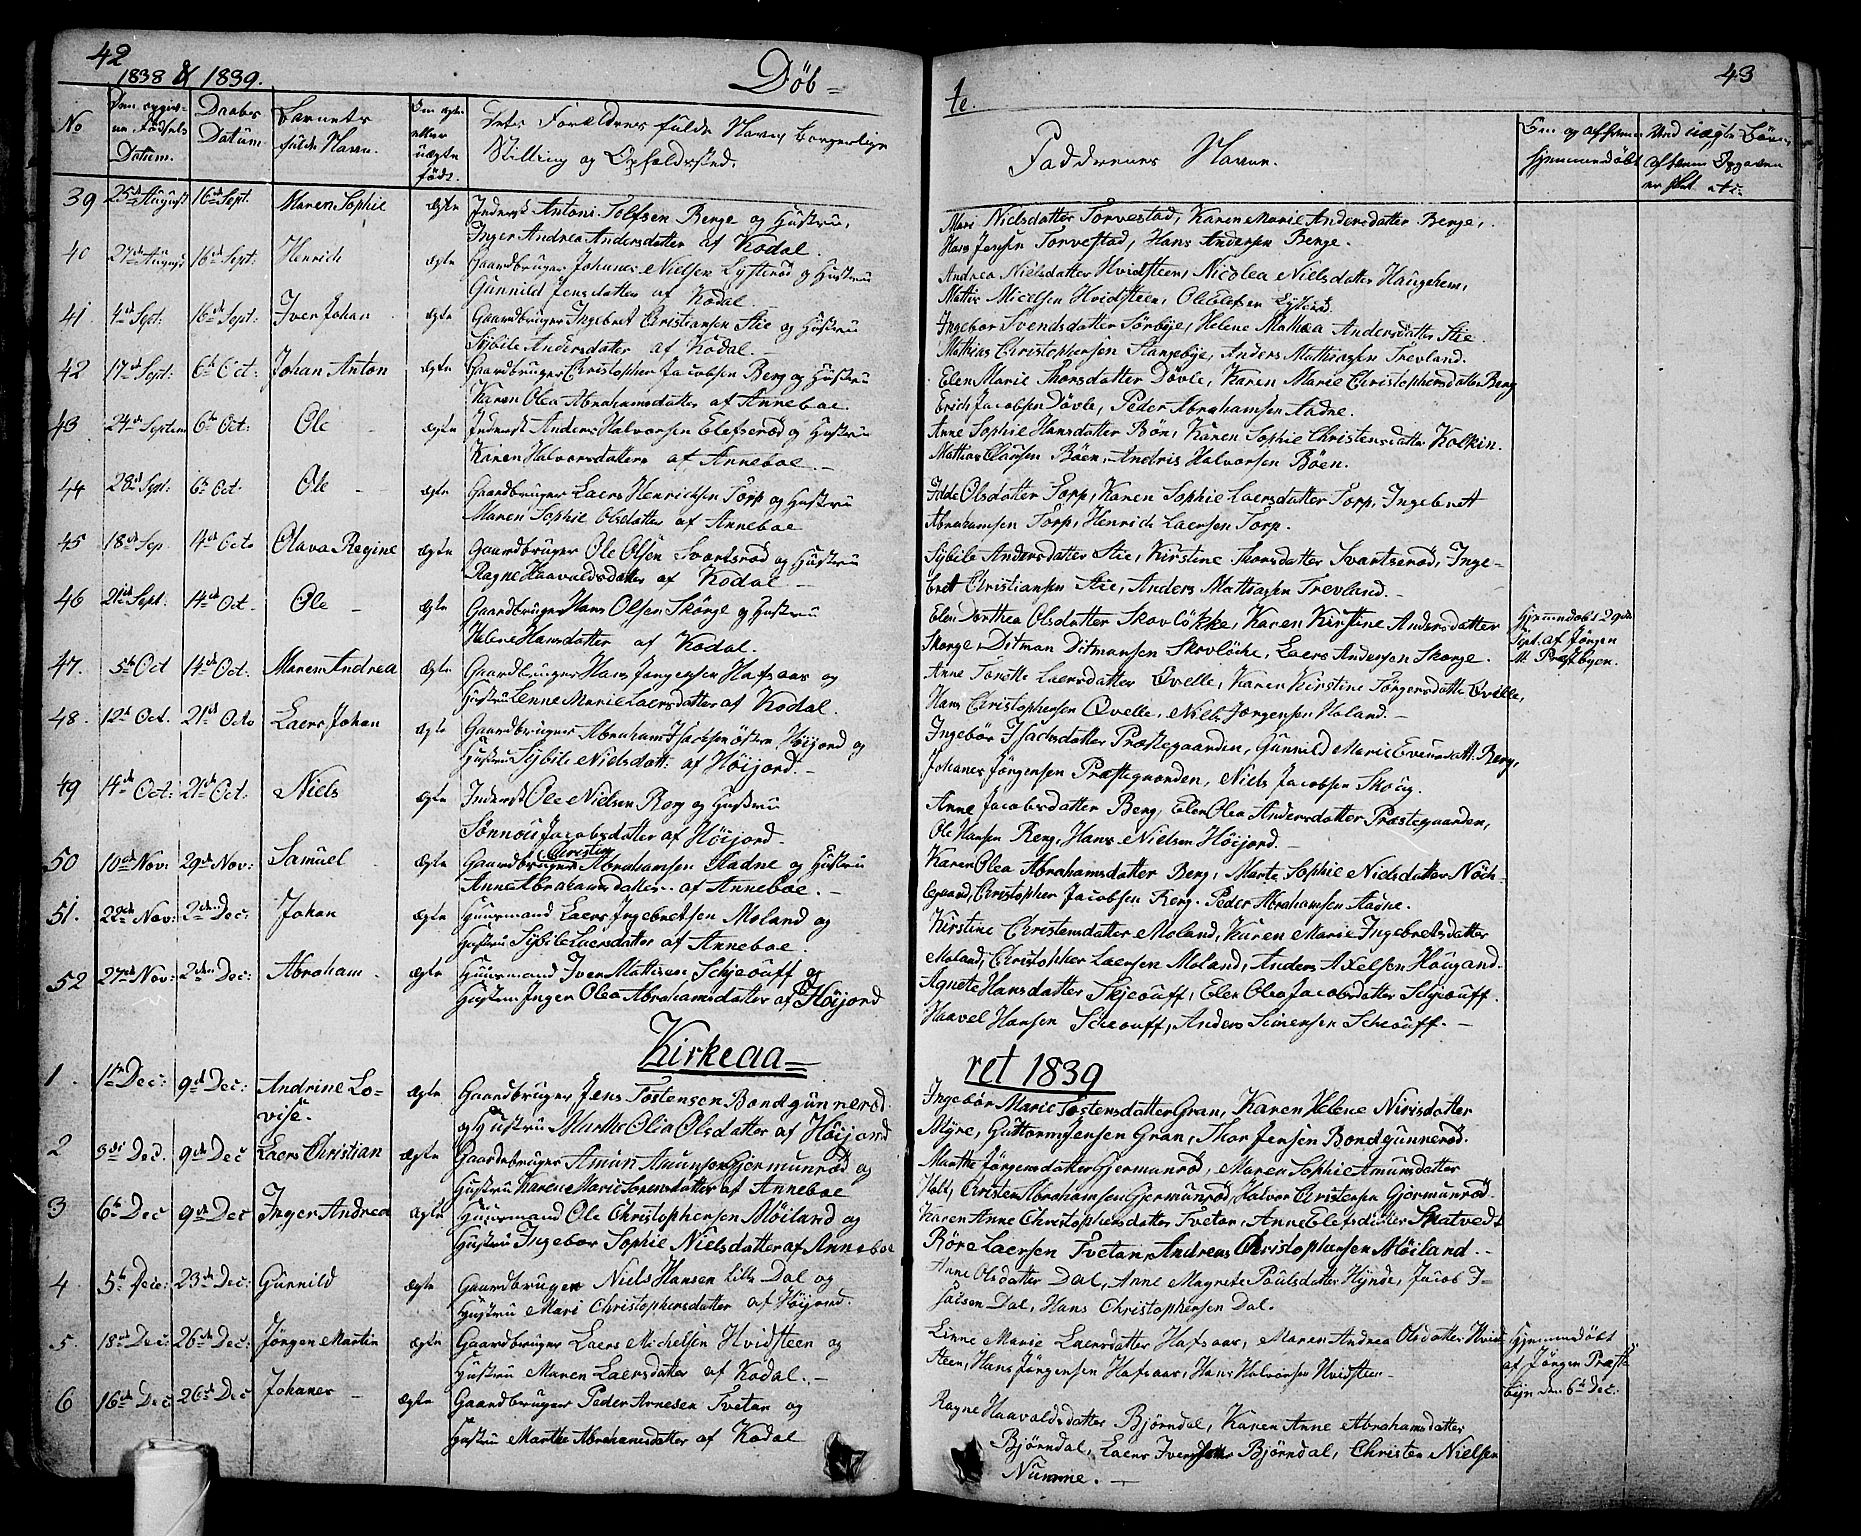 42
1838 & 1839.
Döb=
No
Den opgiv-
ne Födsels
Datum.
Daabs
Datum
Barnets
fulde Navn.
Om ægte
eller
uægte
födt.
Forældres fulde Navn, borgerlige
Stilling og Opholdssted.
39 25de August 16de Sept. Maren Sophie ægte Inderst Antoni Tolfsen Berge og Hustru,
Inger Andrea Andersdatter af Kodal.
40 27de August 16de Sept: Henrich ægte Gaardbruger Johanes Nielsen Lysterød og Hustru
Gunnild Jensdatter af Kodal.
41 4de Sept: 16de Sept: Iver Johan ægte Gaardbruger Ingebret Christiansen Stie og Hustru
Sybile Andersdatter af Kodal.
42 17de Sept: 6te Oct: Johan Anton ægte Gaardbruger Christopher Jacobsen Berg og Hustru
Karen Olea Abrahamsdatter af Anneboe.
43. 24de Septem 6te Oct: Ole ægte Inderst Anders Halvorsen Elefsrød og Hustru
Karen Halvorsdatter af Anneboe.
44 28de Sept: 6te Oct. Ole ægte Gaardbruger Laers Henrichsen Torp og Hustru
Maren Sophie Olsdatter af Anneboe
45 18de Sep. 14de Octo Olava Regine ægte Gaardbruger Ole Olsen Svartsrød og Hustru
Ragne Haavaldsdatter af Kodal
46 21de Sept. 14de Oct. Ole ægte Gaardbruger Hans Olsen Skorge og Hustru
Helene Hansdatter af Kodal.
47. 5te Oct 14de Oct. Maren Andrea ægte Gaardbruger Hans Jørgensen Hafsaas og
Hustru Lenne Marie Laersdatter af Kodal.
48. 12te Oct. 21de Octo Laers Johan ægte Gaardbruger Abraham Isachsen östre Höijord og
Hustru Sybile Nielsdatt: af Höijord.
49 14de Oct: 21de Oct. Niels ægte Inderst Ole Nielsen Berg og Hustru
Sønnou Jacobsdatter af Höijord.
50 10de Nov: 29de Nov: Samuel ægte Gaardbruger Christen Abrahamsen Aadne og Hustru
Anne Abrahamsdatter af Anneboe.
51. 22de Nov: 2den Dec: Johan ægte Huusmand Laers Ingebretsen Moland og
Hustru Sybile Laersdatter af Anneboe
52 27de Nov: 2den Dec: Abraham ægte Huusmand Iver Mathisen Schjeouff og
Hustru Inger Olea Abrahamsdatter af Höijord
Kirkeaa=
1. 1te Dec: 9de Dec: Andrine Lo-
vise. ægte Gaardbruger Jens Tostensen Bondgunnerød
og Hustru Marthe Olea Olsdatter af Höijord
2 3die Dec. 9de Dec Laers Christian ægte Gaardbruger Amun Amunsen Gjermunrød og
Hustru Karen Marie Sorensdatter af Anneboe
3 6te Dec 9de Dec Inger Andrea ægte Huusmand Ole Christophersen Möiland og
Hustru Ingebor Sophie Nielsdatter af Anneboe
4 5te Dec: 23de Dec: Gunnild ægte Gaardbruger Niels Hansen Lille Dal og
Hustru Mari Christophersdatter af Höijord.
5 18de Dec: 26de Dec: Jörgen Martin ægte Gaardbruger Laers Michelsen Hvidsteen og
Hustru Maren Laersdatter af Kodal.
6 16de Dec 26de Dec Johanes ægte Gaardbruger Peder Arnesen Tvetan og
Hustru Marthe Abrahamsdatter af Kodal
43
te.
Faddrenes Navne.
Om og af hvem
hjemmedöbt
Ved uægte Börn,
af hvem Opgaven
er skeet etc:
Mari Nielsdatter Torvestad, Karen Marie Andersdatter Berge,
Hans Jensen Torvestad, Hans Andersen Berge.
Andrea Nielsdatter Hvidsteen, Nicolea Nielsdatter Haugehem,
Mathis Micelsen Hvidsteen, Ole Olefsen Lysterød
Ingebor Svendsdatter Sörbye, Helene Mathea Andersdatter Stie.
Mathias Christophersen Stangebye, Anders Mathiasen Trevland.
Elen Marie Thorsdatter Dövle, Karen Marie Christophersdatter Berg
Erich Jacobsen Dövle, Peder Abrahamsen Aadne.
Anne Sophie Hansdatter Böen, Karen Sophie Christensdatter Kolkin.
Mathias Clausen Böen, Andris Halvorsen Böen.
Olsdatter Torp, Karen Sophie Laersdatter Torp, Ingebret
Abrahamsen Torp, Henrich Laersen Torp.
Sybile Andersdatter Stie, Kirstine Thorsdatter Svartserød, Inge-
bret Christiansen Stie, Anders Mathiasen Trevland.
Elen Dorthea Olsdatter Skovløkke, Karen Kirstine Andersdatter
Skorge, Ditman Ditmansen Skovløcke, Laers Andersen Skorge.
Hjemmedöbt 29de
Sept. af Jörgen
M. Præstbyen.
Anne Torette Laersdatter Øvelle, Karen Kirstine Jörgensdatter Øvelle,
Hans Christophersen Øvelle, Niels Jorgensen Holand.
Ingebör Isachsdatter Præstegaarden, Gunnild Marie Evensdatt: Berg,
Johanes Jörgensen Præstegaarden, Niels Jacobsen Skoug.
Anne Jacobsdatter Berg, Elen Olea Andersdatter Præstegaarden,
Ole Hansen Berg, Hans Nielsen Höijord.
Karen Olea Abrahamsdatter Berg, Marte Sophie Nielsdatter Nöch-
legaard, Christopher Jacobsen Berg, Peder Abrahamsen Aadne.
Kirstine Christensdatter Moland, Karen Marie Ingebretsdatter
Moland, Christopher Laersen Moland, Anders Axelsen Hougand.
Agnete Hansdatter Skjeouff, Elen Olea Jacobsdatter Schjeouff.
Haavel Hansen Scheouff, Anders Simensen Scheouff.
ret 1839
Ingebör Marie Tostensdatter Gran, Karen Helene Nirisdatter
Myre, Guttorm Jensen Gran, Thor Jensen Bondgunnerød.
Marthe Jörgensdatter Gjermunrød, Maren Sophie Amunsdatter
Holt, Christen Abrahamsen Gjermunrød, Halvor Christensen Gjermunrød.
Karen Anne Christophersdatter Tvetan, Anne Elefsdatter Skatvedt
Röre Laersen Tvetan, Andreas Christophersen Möiland.
Anne Olsdatter Dal, Anne Magrete Poulsdatter Hynde, Jacob I-
sacsen Dal, Hans Christophersen Dal.
Linne Marie Laersdatter Hafsaas, Maren Andrea Olsdatter Hvid-
steen, Hans Jörgensen Hafsaas, Hans Halvorsen Hvidsteen
Hjemmedöbt
af Jörgen Præst-
byn den 6te Dec:
Ragne Haavaldsdatter Björndal, Karen Anne Abrahamsdatter
Björndal, Laers Iversen Björndal, Christen Nielsen
Numme.